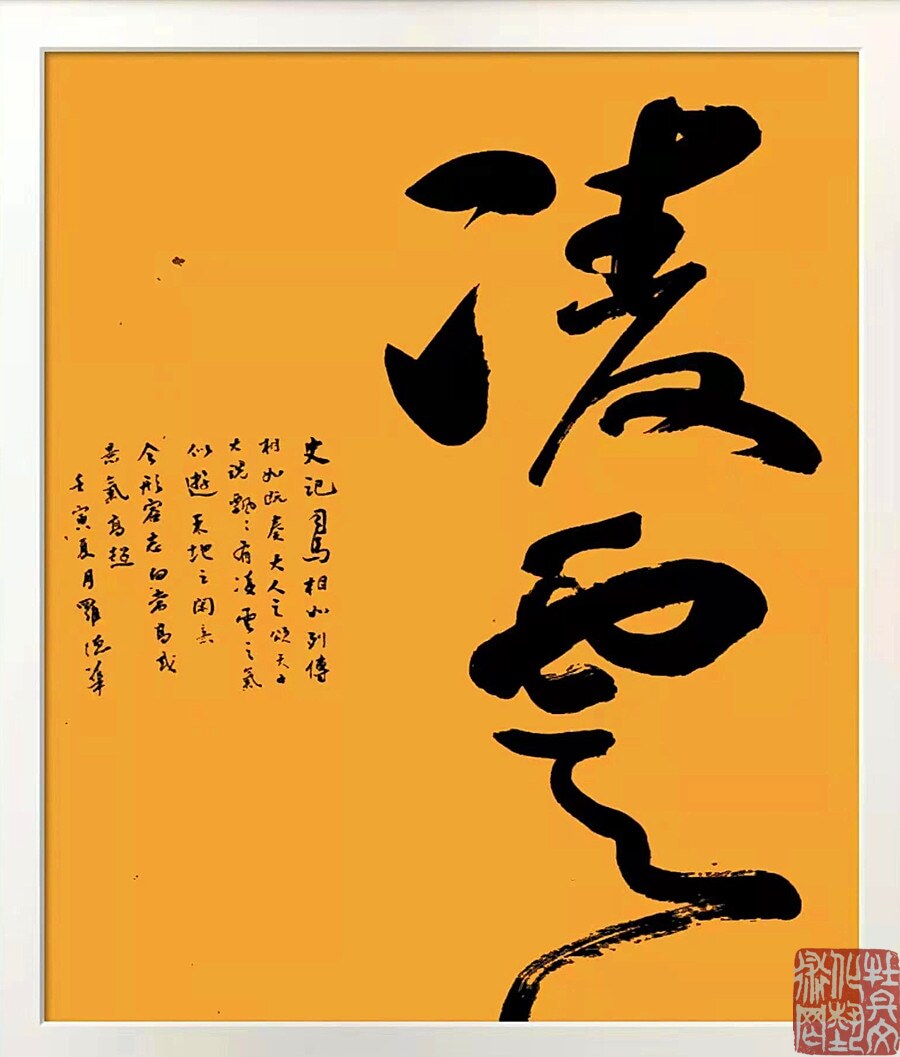 凌雲
史記司馬相如列傳
相如既奏大人之頌天子
大説飄〻有凌雲之氣
似遊天地之間意
今形容志向崇高或
意氣高超
壬寅夏月羅德華